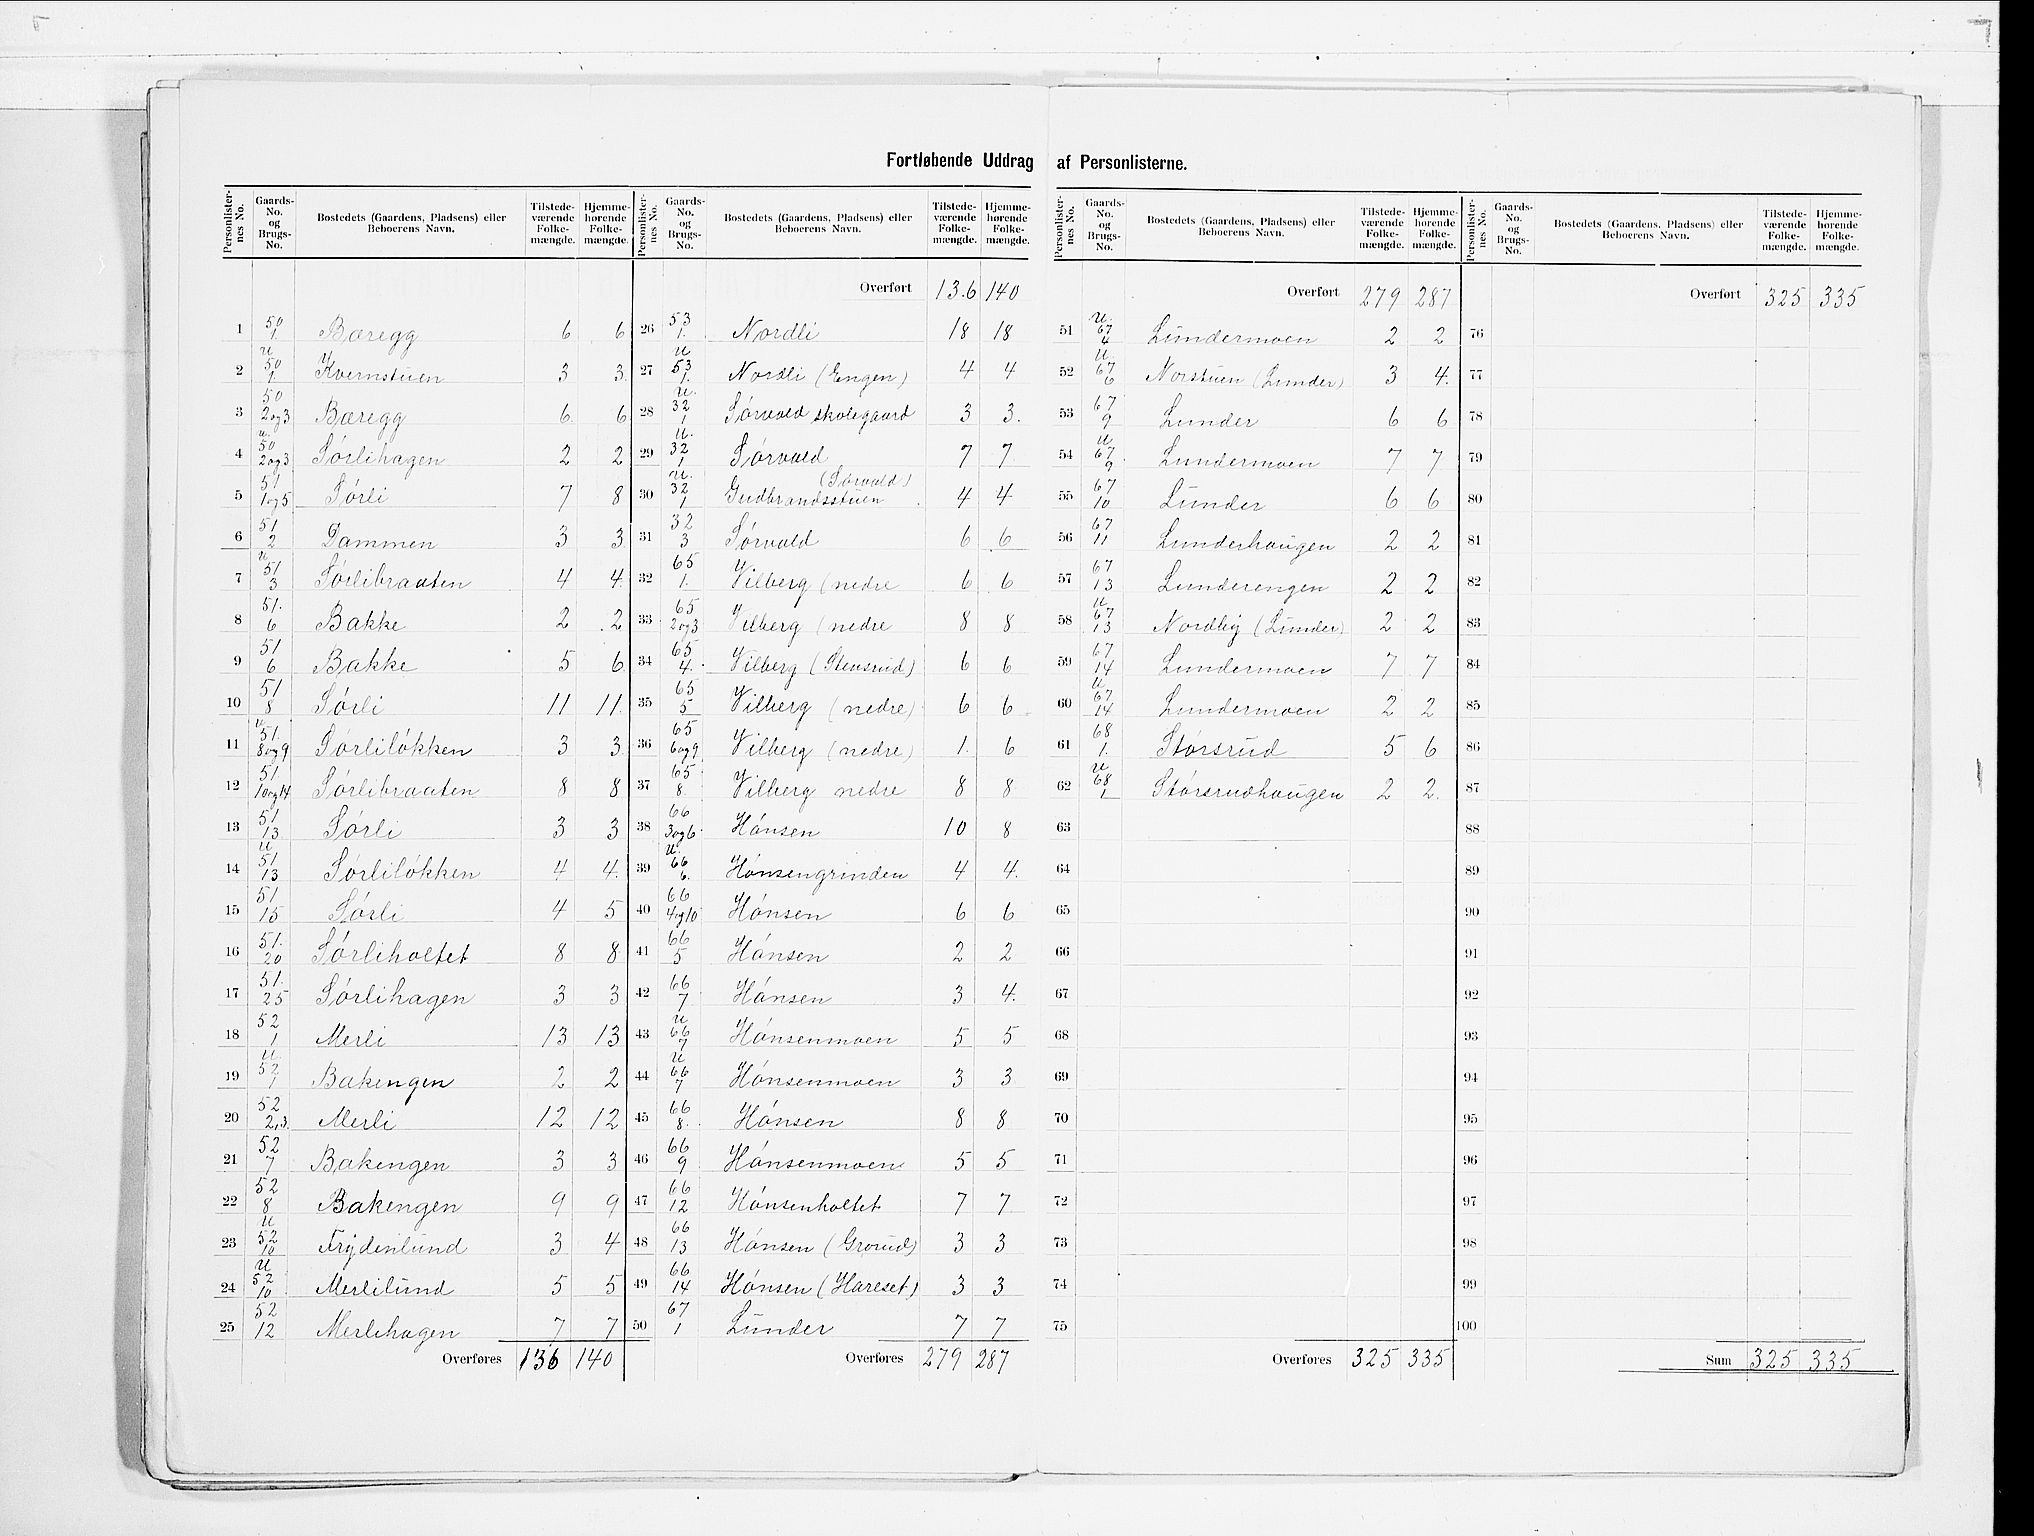 Fortløbende Uddrag af Personlisterne.
Personlisternes No. | Gaards-No. og Brugs-No. | Bostedets (Gaardens, Pladsens) eller Beboerens Navn. | Tilstedeværende Folkemængde. | Hjemmehørende Folkemængde.
1 | 50/1. | Bæregg | 6 | 6
2 | u 50/1 | Kvernstuen | 3 | 3
3 | 50/2og3 | Bæregg | 6 | 6
4 | u. 50/2og3 | Sørlihagen | 2 | 2
5 | 51/1og5 | Sørli | 7 | 8
6 | 51/2 | Dammen | 3 | 3
7 | u 51/3 | Sørlibraaten | 4 | 4
8 | 51./6 | Bakke | 2 | 2
9 | 51/6 | Bakke | 5 | 6
10 | 51/8 | Sørli | 11 | 11
11 | u 51./8og9 | Sørliløkken | 3 | 3
12 | 51/10og14 | Sørlibraaten | 8 | 8
13 | 51/13 | Sørli | 3 | 3
14 | u 51/13 | Sørliløkken | 4 | 4
15 | 51/15 | Sørli | 4 | 5
16 | 51./20 | Sørliholtet | 8 | 8
17 | 51./25 | Sørlihagen | 3 | 3
18 | 52/1 | Merli | 13 | 13
19 | u. 52/1 | Bakengen | 2 | 2
20 | 52/2,3. | Merli | 12 | 12
21 | 52/7 | Bakengen | 3 | 3
22 | 52/8 | Bakengen | 9 | 9
23 | u 52/10 | Frydenlund | 3 | 4
24 | u 52/10 | Merlilund | 5 | 5
25 | 52/12 | Merlihagen | 7 | 7
Overføres 136 140
Personlisternes No. | Gaards-No. og Brugs-No. | Bostedets (Gaardens, Pladsens) eller Beboerens Navn. | Tilstedeværende Folkemængde. | Hjemmehørende Folkemængde.
Overført 13.6 140
26 | 53/1. | Nordli | 18 | 18
27 | u 53/1. | Nordli (Engen) | 4 | 4
28 | u. 32/1 | Sørvold skolegaard | 3 | 3.
29 | u. 32/1 | Sørvold | 7 | 7
30 | u. 32/1 | Gudbrandsstuen (Sørvold) | 4 | 4
31 | 32/3 | Sørvold | 6 | 6
32 | 65/1. | Vilberg (nedre | 6 | 6
33 | 65/2og3 | Vilberg (nedre | 8 | 8
34 | 65/4. | Vilberg (Stensrud) | 6 | 6
35 | 65/5 | Vilberg (nedre) | 6 | 6
36 | 65/6og9 | Vilberg (nedre) | 1. | 6
37 | 65/8. | Vilberg nedre | 8 | 8
38 | 66/3og6. | Hónsen | 10 | 8
39 | u. 66/6. | Hónsengrinden | 4 | 4.
40 | 66/4og10 | Hónsen | 6 | 6
41 | 66/5 | Hónsen | 2 | 2
42 | 66/7 | Hónsen | 3 | 4.
43 | u 66/7 | Hónsenmoen | 5 | 5
44 | u 66/7 | Hónsenmoen | 3 | 3
45 | 66/8. | Hónsen | 8 | 8
46 | 66/9 | Hónsenmoen | 5 | 5
47 | 66/12 | Hónsenholtet | 7 | 7
48 | 66/13 | Hónsen (Grorud) | 3 | 3
49 | 66/14 | Hónsen (Hareset) | 3 | 3
50 | 67/1 | Lunder | 7 | 7
Overføres 279 287
Personlisternes No. | Gaards-No. og Brugs-No. | Bostedets (Gaardens, Pladsens) eller Beboerens Navn. | Tilstedeværende Folkemængde. | Hjemmehørende Folkemængde.
Overført 279 287
51 | u. 67/4 | Lundermoen | 2 | 2
52 | u. 67/6 | Norstuen (Lunder) | 3 | 4.
53 | 67/9 | Lunder | 6 | 6
54 | u 67/9 | Lundermoen | 7 | 7
55 | 67/10 | Lunder | 6 | 6
56 | 67/11 | Lunderhaugen | 2 | 2
57 | 67/13 | Lunderengen | 2 | 2
58 | u 67/13 | Nordby (Lunder) | 2 | 2
59 | 67/14 | Lundermoen | 7 | 7
60 | u 67/14 | Lundermoen | 2 | 2
61 | 68/1. | Størsrud | 5 | 6
62 | u 68/1 | Størsrudhaugen | 2 | 2.
63
64
65
66
67
68
69
70
71
72
73
74
75
Overføres 325 335
Personlisternes No. | Gaards-No. og Brugs-No. | Bostedets (Gaardens, Pladsens) eller Beboerens Navn. | Tilstedeværende Folkemængde. | Hjemmehørende Folkemængde.
Overført 325 335
76
77
78
79
80
81
82
83
84
85
86
87
88
89
90
91
92
93
94
95
96
97
98
99
100
Sum 325 335